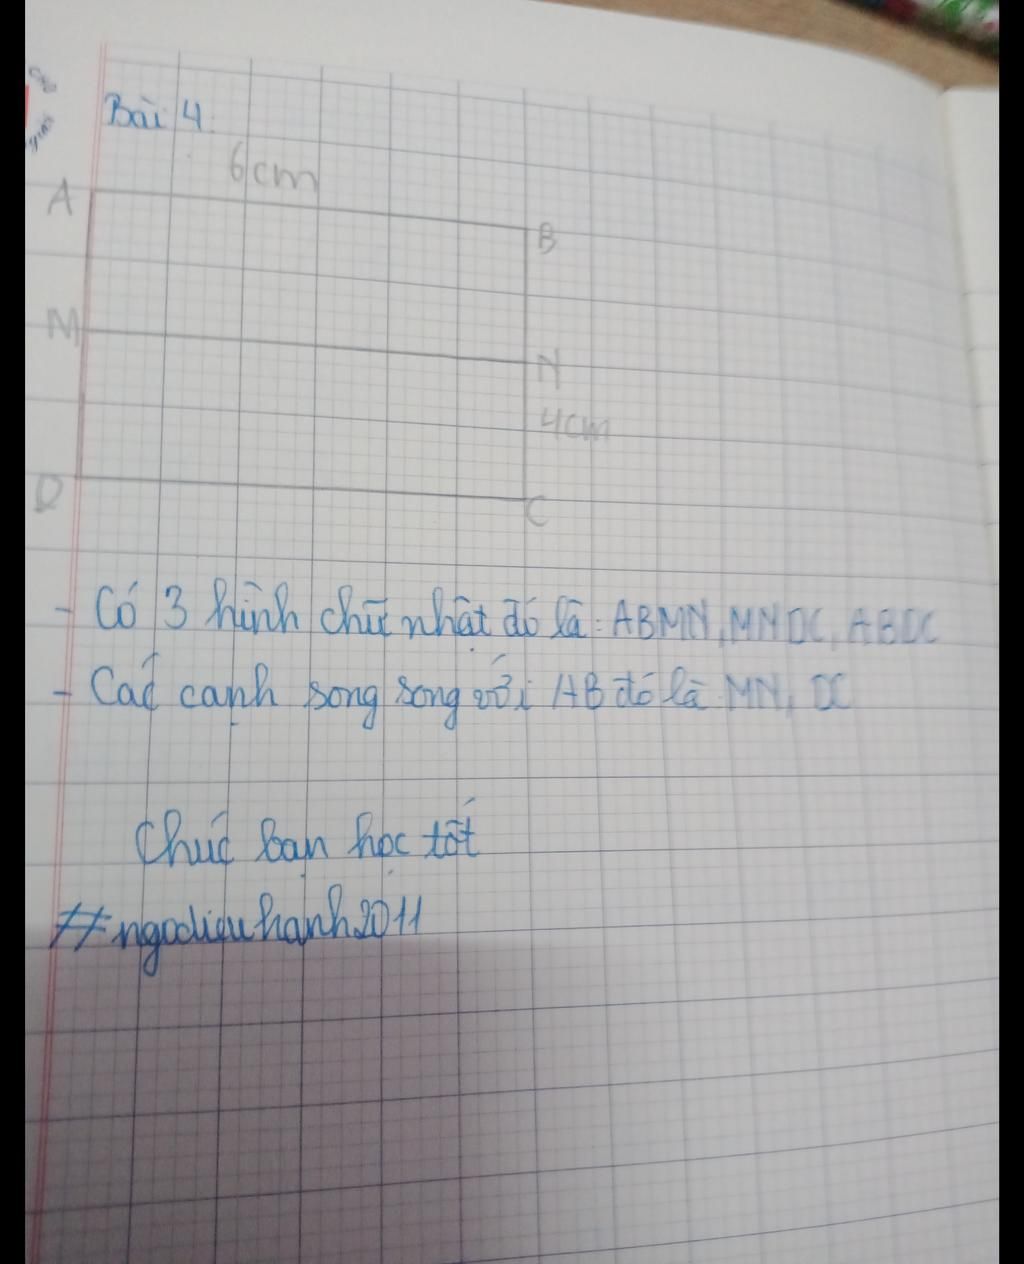 Bài 4
6cm
A
B
M
N
4cm
D
C
- Có 3 hình chữ nhật đó là: ABMN, MNDC, ABDC
- Các cạnh song song với AB đó là MN, DC
Chúc bạn học tốt
#ngocdieuhanh2011